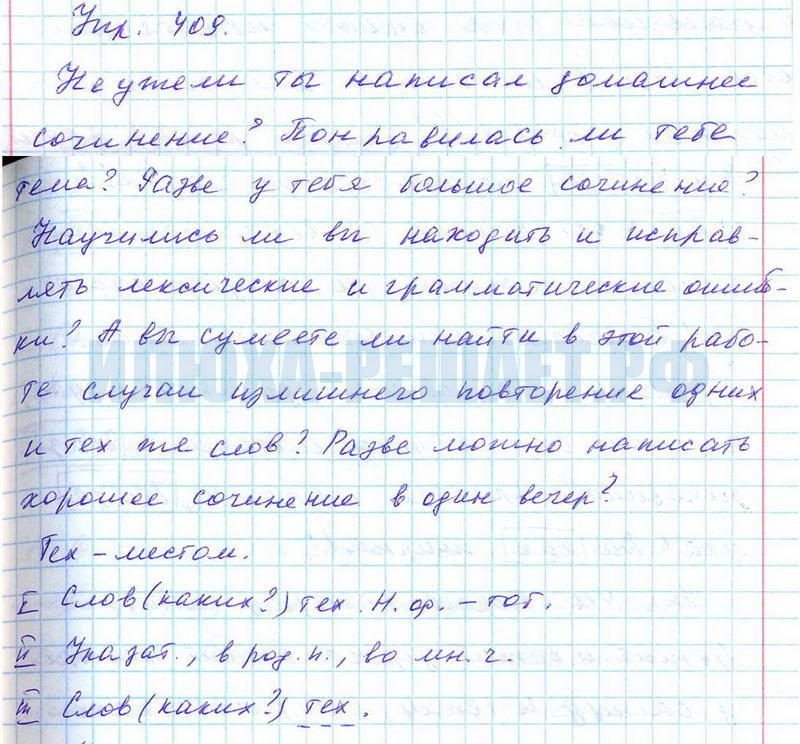 Упр. 409.
Неужели ты написал домашнее
сочинение? Понравилась ли тебе
тема? Разве у тебя большое сочинение?
Научились ли вы находить и исправ-
лять лексические и грамматические ошиб-
ки? А вы сумеете ли найти в этой рабо-
те случаи излишнего повторение одних
и тех же слов? Разве можно написать
хорошее сочинение в один вечер?
Тех - местом.
I Слов (каких?) тех. Н. ф. - тот.
II Указат., в род. п., во мн. ч.
III Слов (каких?) тех.
ИПОХА-РЕШАЕТ.РФ